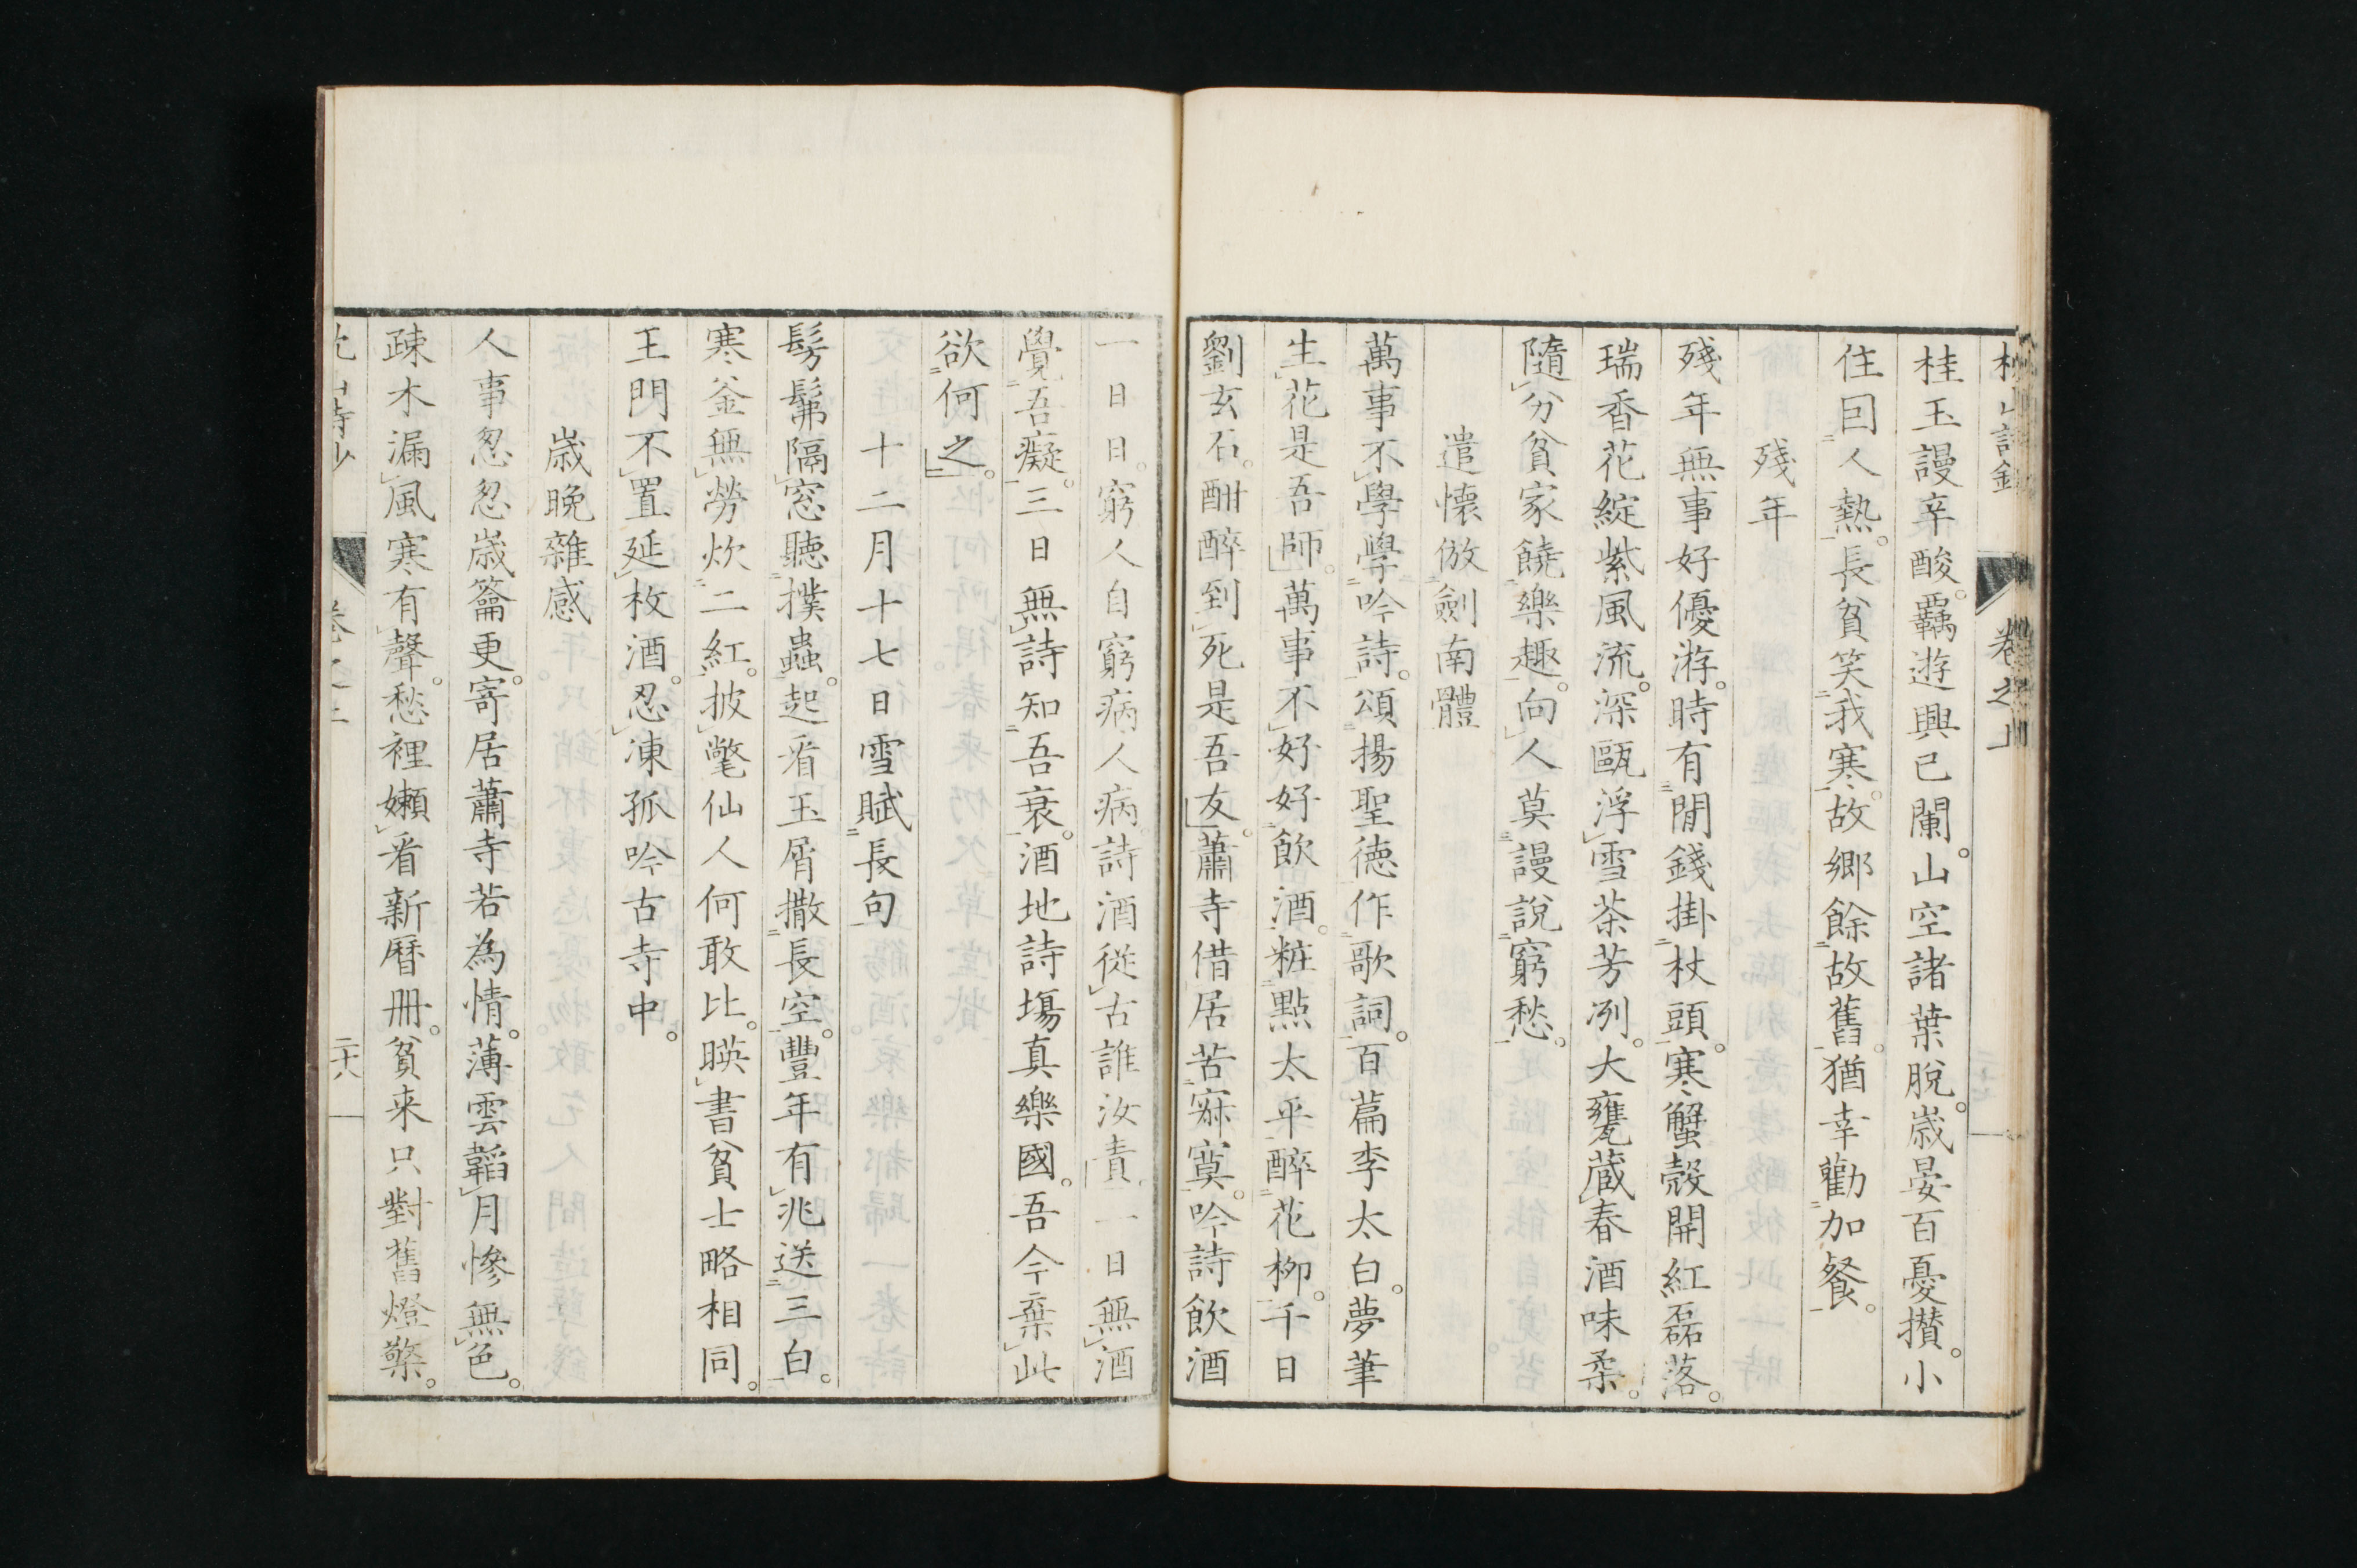 卷之上
桂玉謾辛酸。覊遊興已闌。山空諸葉脫。歳晏百憂攅。小
住回人熱。長貧笑我寒。故鄉餘故舊。猶幸勸加餐。
殘年
殘年無事好優游。時有閒錢掛杖頭。寒蟹殼開紅磊落。
瑞香花綻紫風流。深甌浮雪茶芳冽。大甕蔵春酒味柔。
隨分貧家饒樂趣。向人莫謾說窮愁。
遣懷倣劍南體
萬事不學學吟詩。頌揚聖徳作歌詞。百篇李太白。夢筆
生花是吾師。萬事不好好飲酒。粧點太平醉花柳。千日
劉玄石。酣醉到死是吾友。蕭寺借居苦寂寞。吟詩飲酒
一日日。窮人自窮病人病。詩酒從古誰汝責。一日無酒
覺吾癡。三日無詩知吾衰。酒地詩塲真樂國。吾今棄此
欲何之。
十二月十七日雪賦長句
髣髴隔窓聽撲蟲。起看玉屑撒長空。豐年有兆送三白。
寒釜無勞炊二紅。披氅仙人何敢比。暎書貧士略相同。
王門不置延枚酒。忍凍孤吟古寺中。
歳晚雜感
人事忽忽歳籥更。寄居蕭寺若為情。薄雲韜月慘無色。
疎木漏風寒有聲。愁裡嬾看新曆冊。貧来只對舊燈檠。
二十八